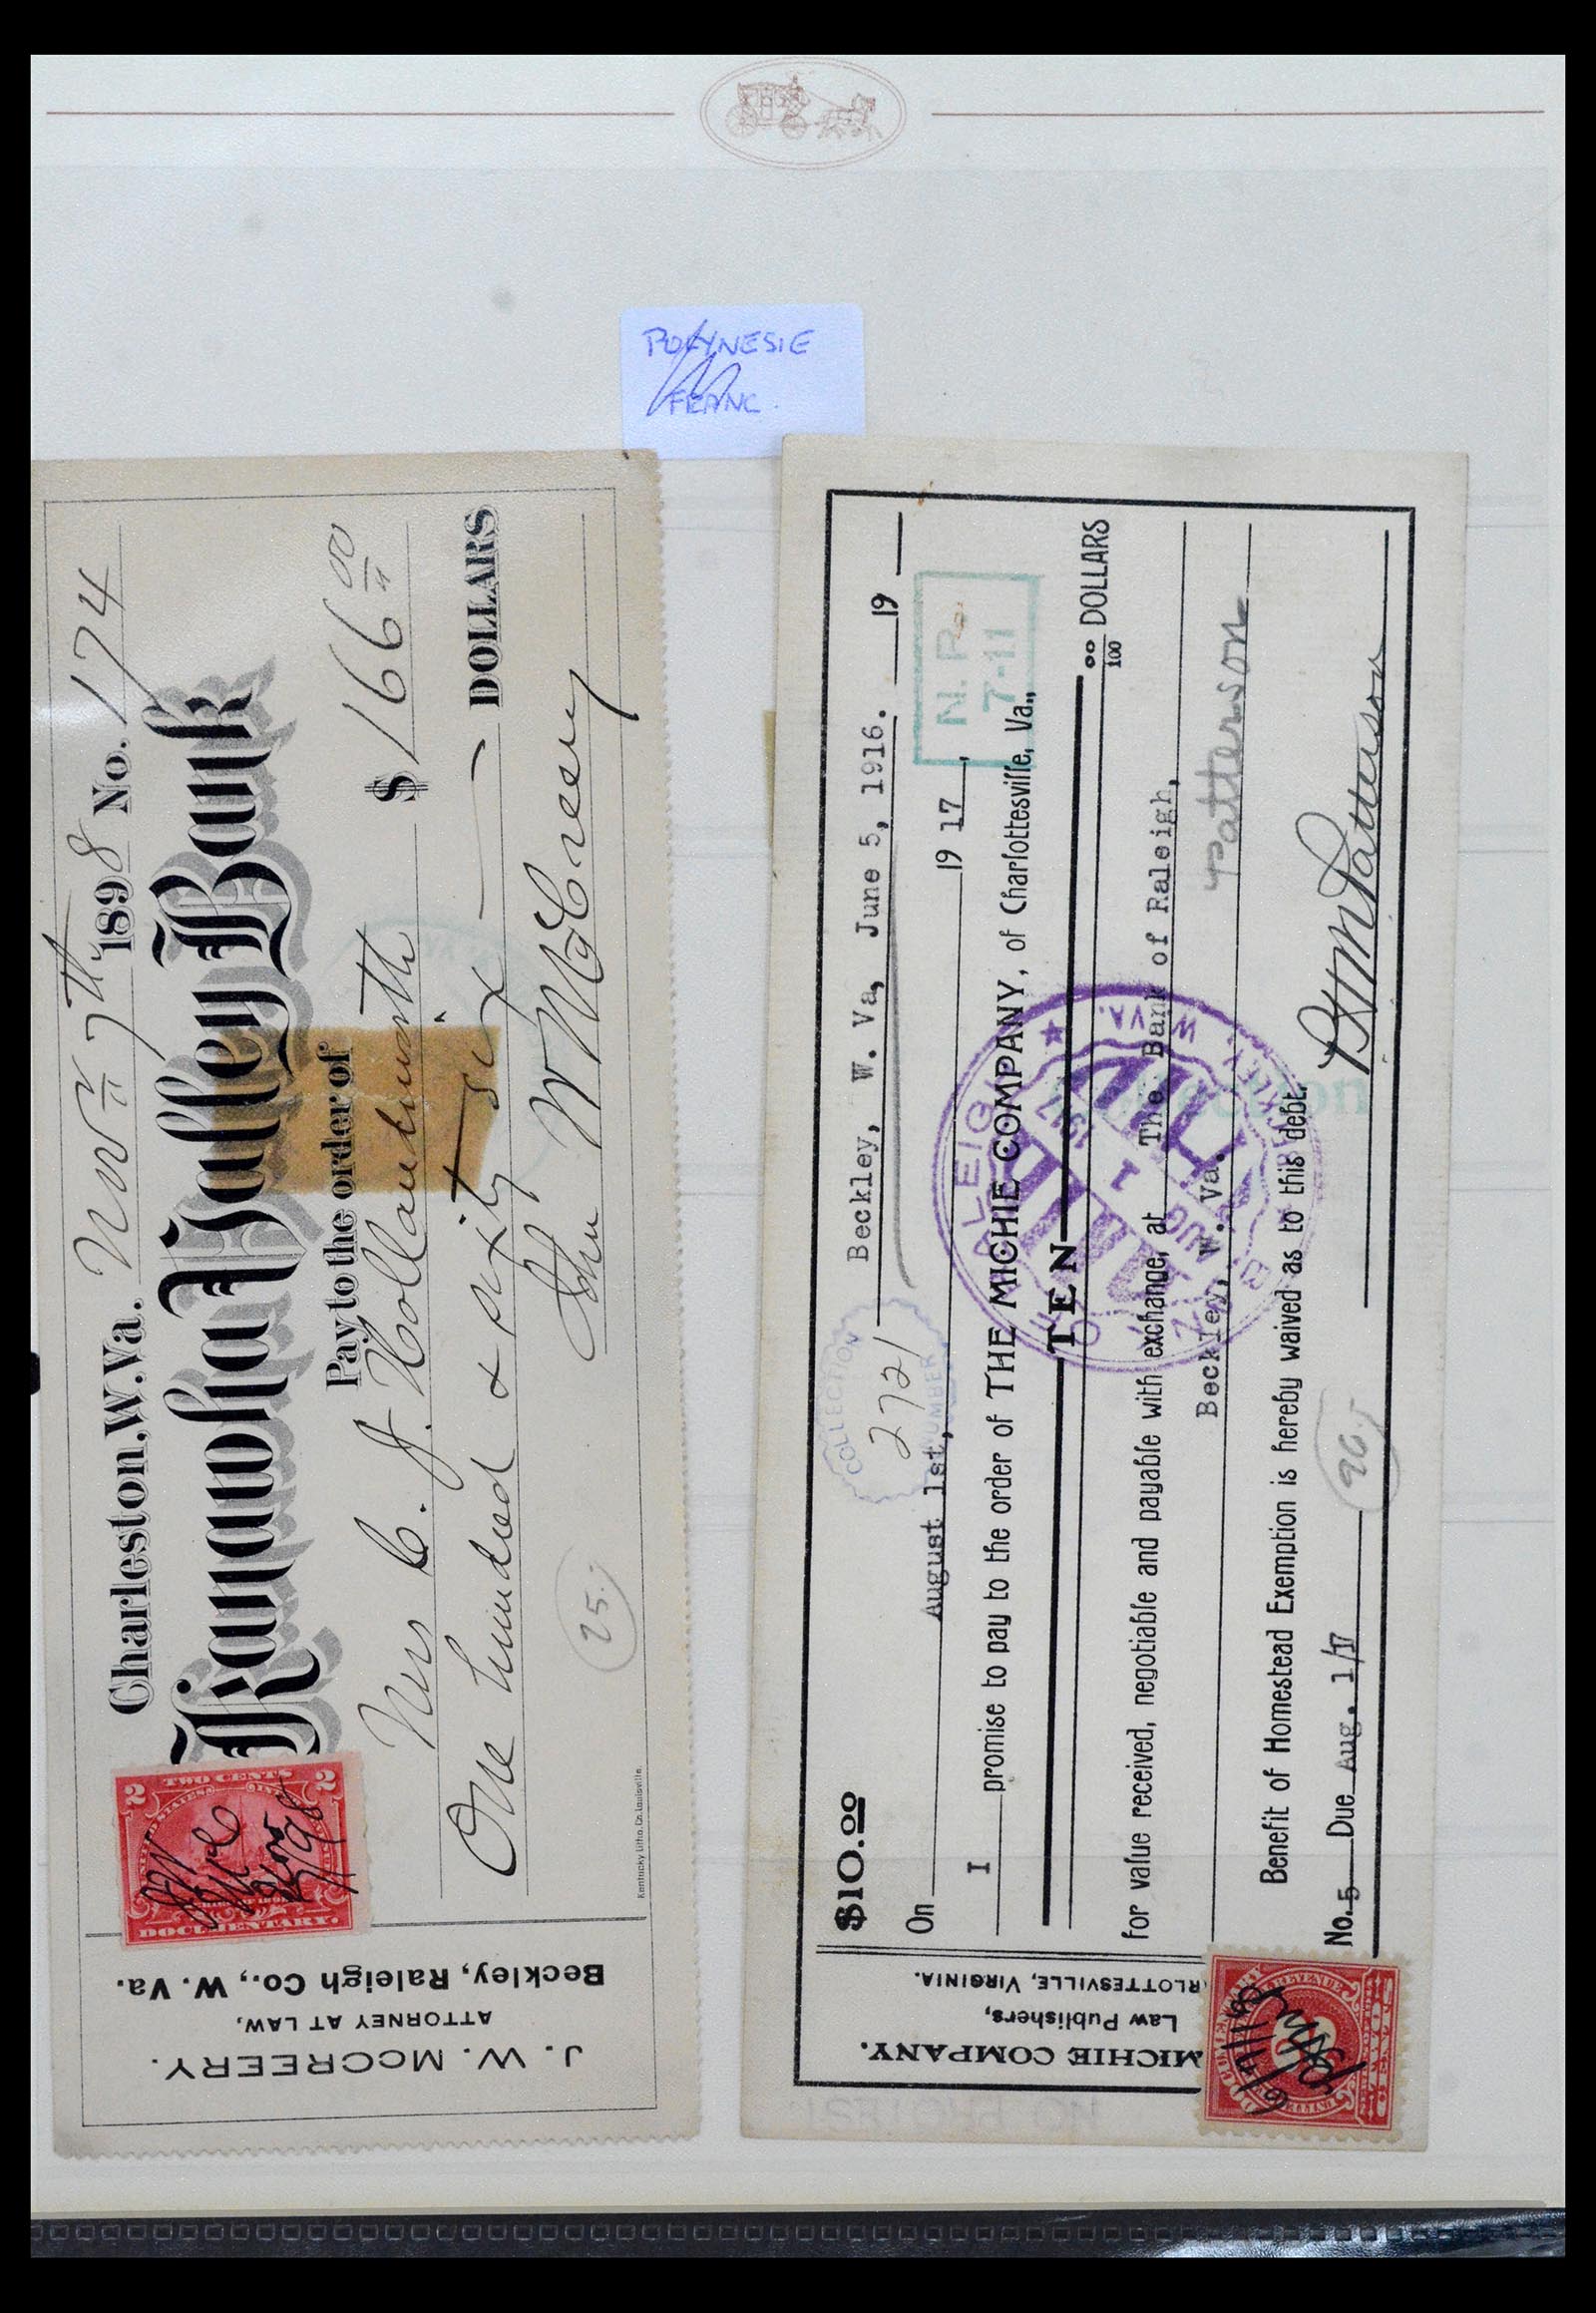 POLYNESIE
FRANC.
Charleston, W. Va. Nov 7th 1898 No. 174
Kanawha Valley Bank
Pay to the order of
Mrs C. J. Hollandsworth $166 00
One hundred & sixty six DOLLARS
John W McCreery
25.
Kentucky Litho. Co. Louisville.
TWO CENTS
2 2
DOCUMENTARY.
J. W. MCCREERY.
ATTORNEY AT LAW,
Beckley, Raleigh Co., W. Va.
$10.00 Beckley, W. Va, June 5, 1916. 19
COLLECTION
2721
NUMBER
N. P.
7-11
On August 1st, 19 17,
I promise to pay to the order of THE MICHIE COMPANY, of Charlottesville, Va.,
TEN 00/100 DOLLARS
for value received, negotiable and payable with exchange, at The Bank of Raleigh,
Beckley, W. Va.
Patterson
Benefit of Homestead Exemption is hereby waived as to this debt.
No. 5 Due Aug. 1/17
96.
PAID
AUG 1 1917
W. VA.
MICHIE COMPANY.
Law Publishers,
RLOTTESVILLE, VIRGINIA.
NO PROTEST